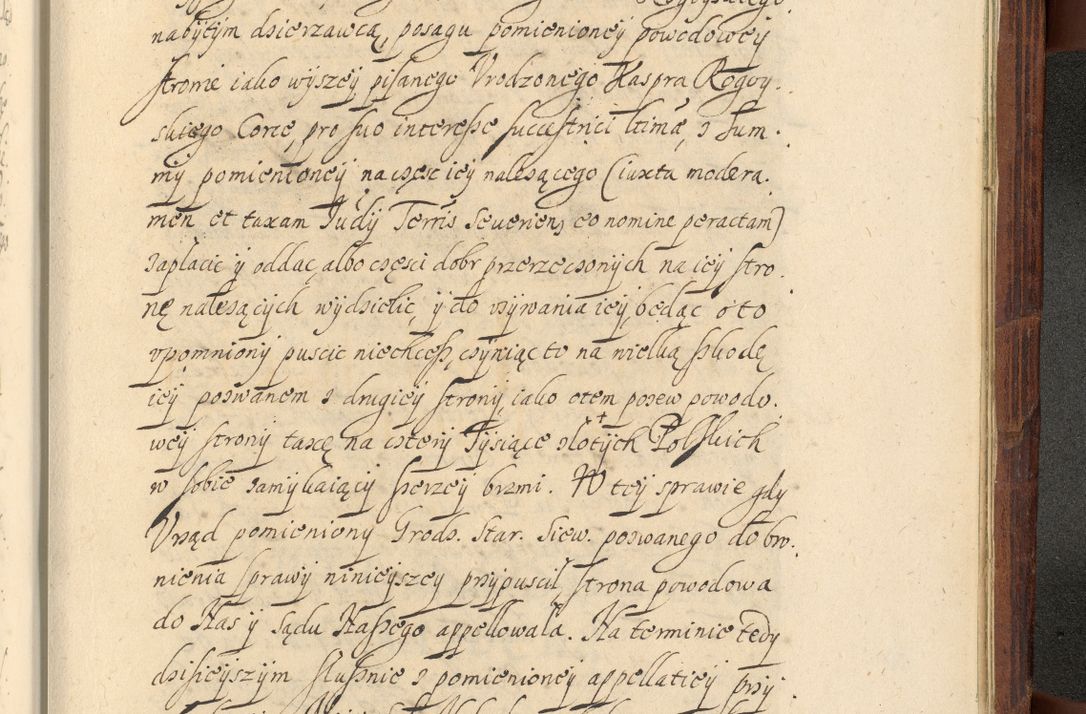 nabytym dzierzawcą, posagu pomienioney powodowey
stronie iako wyszey pisanego Vrodzonego Kaspra Rogoy
skiego Corce, pro suo interesse success ltimæ, z Sum
my pomienioney na częsc iey nalezącego (iuxta modera
men et taxam Judy Terris Seuerien, eo nomine peractam)
zaplacic y oddac, albo części dobr przerzeczonych na iey stro
nę nalezących wydzielic, y do vzywania iey, będąc o to
vpomniony puscic niechcesz, czyniąc to na wielką szkodę
iey pozwanem z drugiey strony, iako otem pozew powodo
wey strony taxę na cztery Tysiące złotych Polskich
w sobie zamykaiący szerzey brzmi. W tey sprawie gdy
Vrząd pomieniony Grodz. Star. Siew. pozwanego do bro
nienia sprawy ninieyszey przypuscil, strona powodowa
do Nas y Sądu Naszego appellowała. Na terminie tedy
dzisieyszym słusznie z pomienioney appellatiey przy